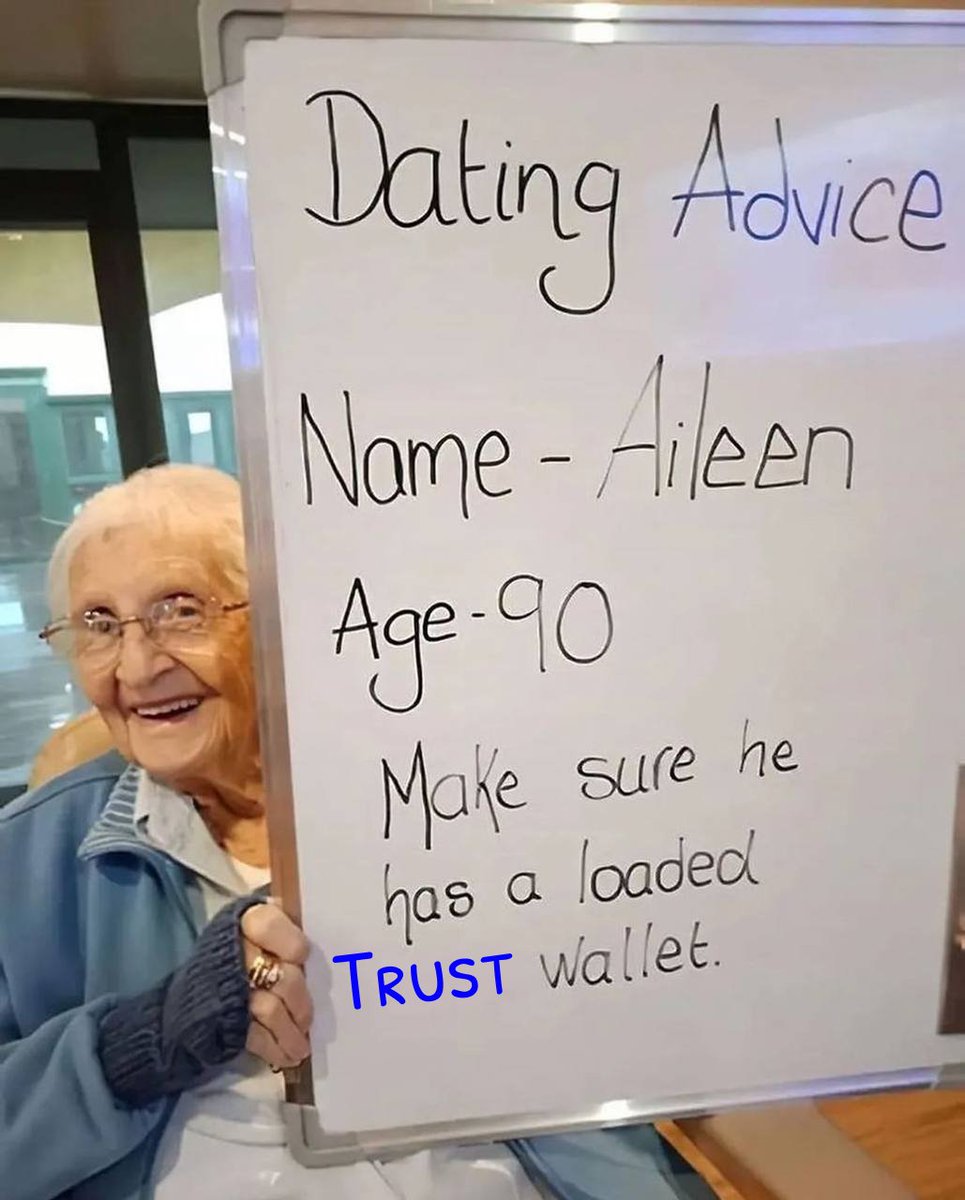 Dating Advice
Name - Aileen
Age - 90
Make sure he
has a loaded
TRUST wallet.